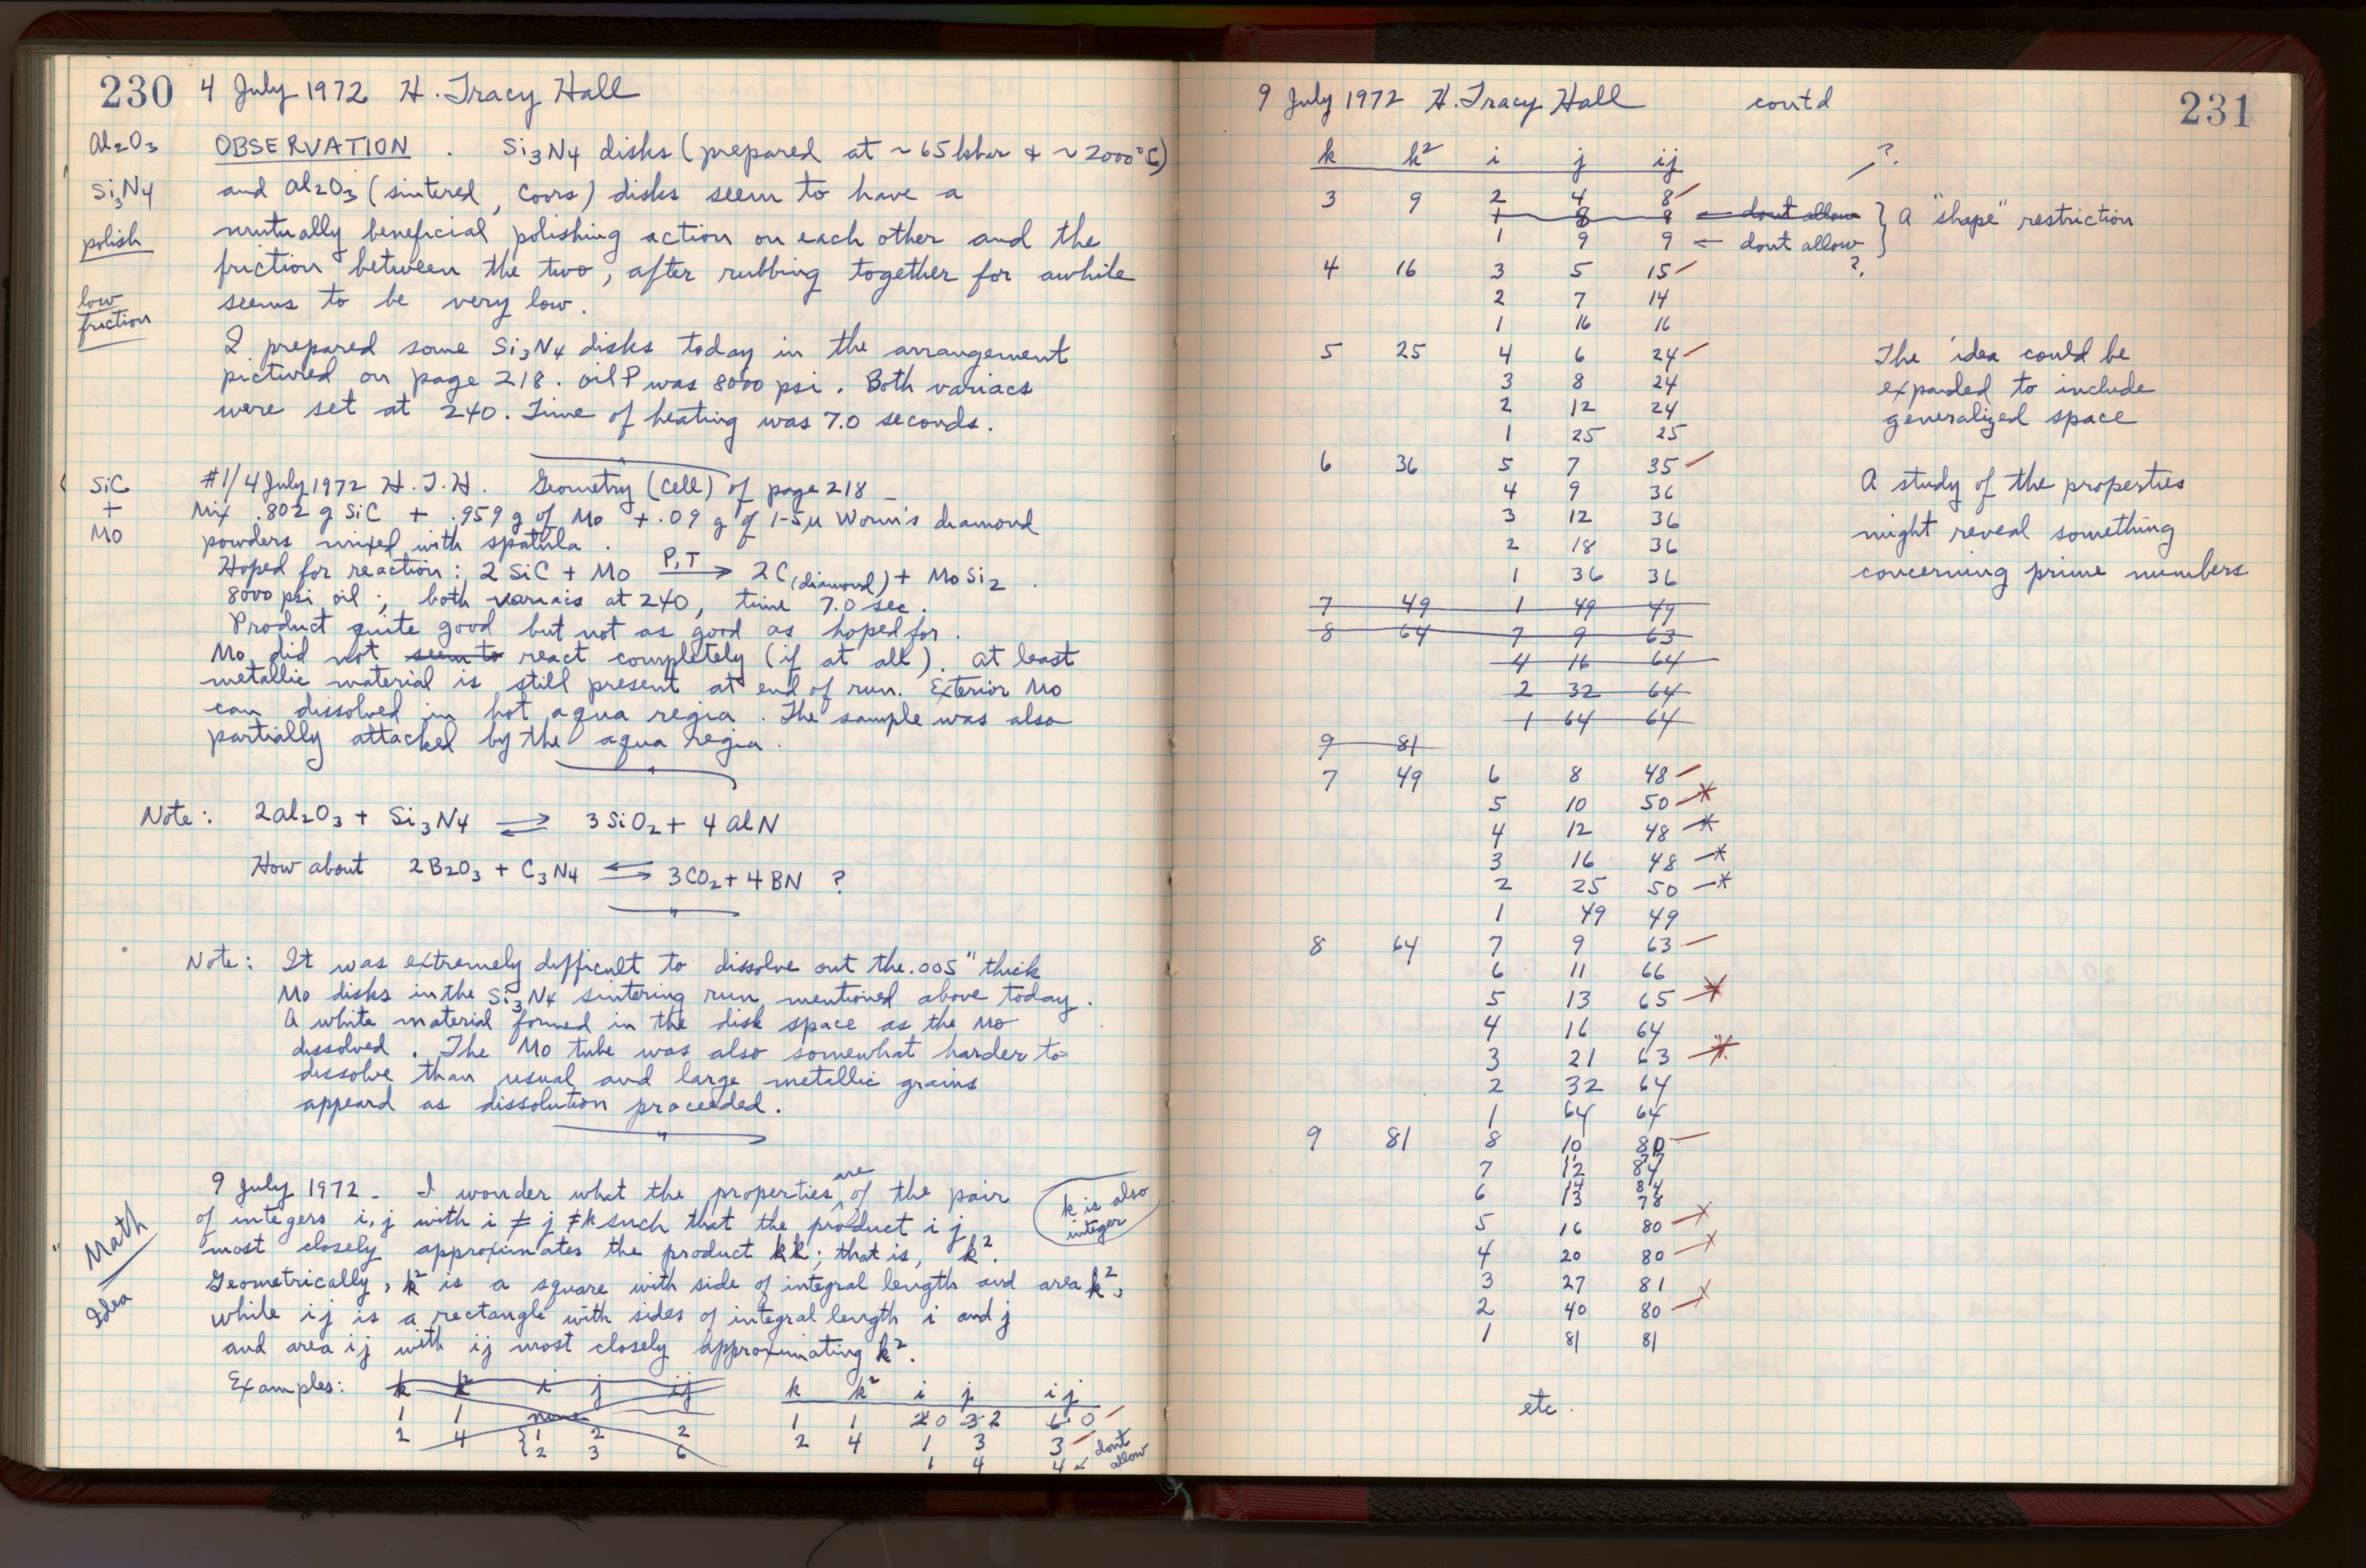 230 4 July 1972 H. Tracy Hall
Al2O3 OBSERVATION . Si3N4 disks (prepared at ~65 kbar + ~2000°C)
Si3N4 and Al2O3 (sintered, Coors) disks seem to have a
polish mutually beneficial polishing action on each other and the
friction between the two, after rubbing together for awhile
low friction seems to be very low.
I prepared some Si3N4 disks today in the arrangement
pictured on page 218. oil P was 8000 psi. Both variacs
were set at 240. Time of heating was 7.0 seconds.
SiC + Mo #1/4 July 1972 H.T.H. Geometry (cell) of page 218
Mix .802 g SiC + .959 g of Mo + .09 g of 1-5µ Worm's diamond
powders mixed with spatula.
Hoped for reaction: 2 SiC + Mo P,T → 2C(diamond) + MoSi2.
8000 psi oil; both variacs at 240, time 7.0 sec.
Product quite good but not as good as hoped for.
Mo did not seem to react completely (if at all). At least
metallic material is still present at end of run. Exterior Mo
can dissolved in hot aqua regia. The sample was also
partially attacked by the aqua regia.
Note: 2Al2O3 + Si3N4 ⇌ 3SiO2 + 4AlN
How about 2B2O3 + C3N4 ⇌ 3CO2 + 4BN ?
Note: It was extremely difficult to dissolve out the .005" thick
Mo disks in the Si3N4 sintering run mentioned above today.
A white material formed in the disk space as the Mo
dissolved. The Mo tube was also somewhat harder to
dissolve than usual and large metallic grains
appeard as dissolution proceeded.
Math Idea
9 July 1972 - I wonder what the properties are of the pair
of integers i, j with i ≠ j ≠ k such that the product i j
k is also integer
most closely approximates the product kk; that is, k².
Geometrically, k² is a square with side of integral length and area k²,
while ij is a rectangle with sides of integral length i and j
and area ij with ij most closely approximating k².
Examples: k k² i j ij
1 1 none
2 4 1 2 2
2 3 6
k k² i j ij
1 1 0 2 0
2 4 1 3 3
1 4 4 ← dont allow
9 July 1972 H. Tracy Hall contd 231
k k² i j ij ?
3 9 2 4 8
1 8 8 ← dont allow } A "shape" restriction
1 9 9 ← dont allow
?
4 16 3 5 15
2 7 14
1 16 16
5 25 4 6 24
3 8 24
2 12 24
1 25 25
The idea could be
expanded to include
generalized space
6 36 5 7 35
4 9 36
3 12 36
2 18 36
1 36 36
A study of the properties
might reveal something
concerning prime numbers
7 49 1 49 49
8 64 7 9 63
4 16 64
2 32 64
1 64 64
9 81
7 49 6 8 48
5 10 50 *
4 12 48 *
3 16 48 *
2 25 50 *
1 49 49
8 64 7 9 63
6 11 66
5 13 65 *
4 16 64
3 21 63 *
2 32 64
1 64 64
9 81 8 10 80
7 12 84
6 13 78
5 16 80 *
4 20 80 *
3 27 81
2 40 80 *
1 81 81
etc.